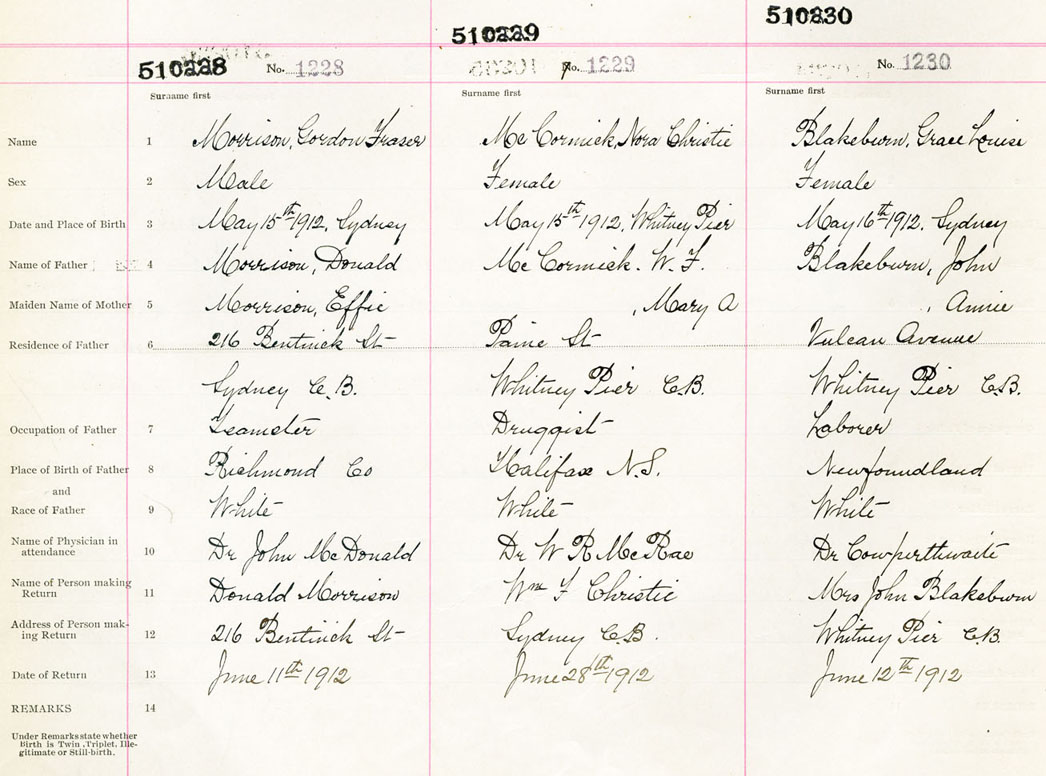 510228 510229 510230
No. 1228 No. 1229 No. 1230
Surname first Surname first Surname first
Name 1 Morrison, Gordon Fraser Mc Cormick, Nora Christie Blakeburn, Grace Louise
Sex 2 Male Female Female
Date and Place of Birth 3 May 15th 1912, Sydney May 15th 1912, Whitney Pier May 16th 1912, Sydney
Name of Father 4 Morrison, Donald Mc Cormick. W. F. Blakeburn, John
Maiden Name of Mother 5 Morrison, Effie , Mary A , Annie
Residence of Father 6 216 Bentinck St Paine St Vulcan Avenue
Sydney C.B. Whitney Pier C.B. Whitney Pier C.B.
Occupation of Father 7 Teamster Druggist Laborer
Place of Birth of Father 8 Richmond Co Halifax N.S. Newfoundland
and
Race of Father 9 White White White
Name of Physician in
attendance 10 Dr John McDonald Dr W R McRae Dr Cowperthwaite
Name of Person making
Return 11 Donald Morrison Wm F Christie Mrs John Blakeburn
Address of Person mak-
ing Return 12 216 Bentinck St Sydney C.B. Whitney Pier C.B.
Date of Return 13 June 11th 1912 June 28th 1912 June 12th 1912
REMARKS 14
Under Remarks state whether
Birth is Twin, Triplet, Ille-
gitimate or Still-birth.